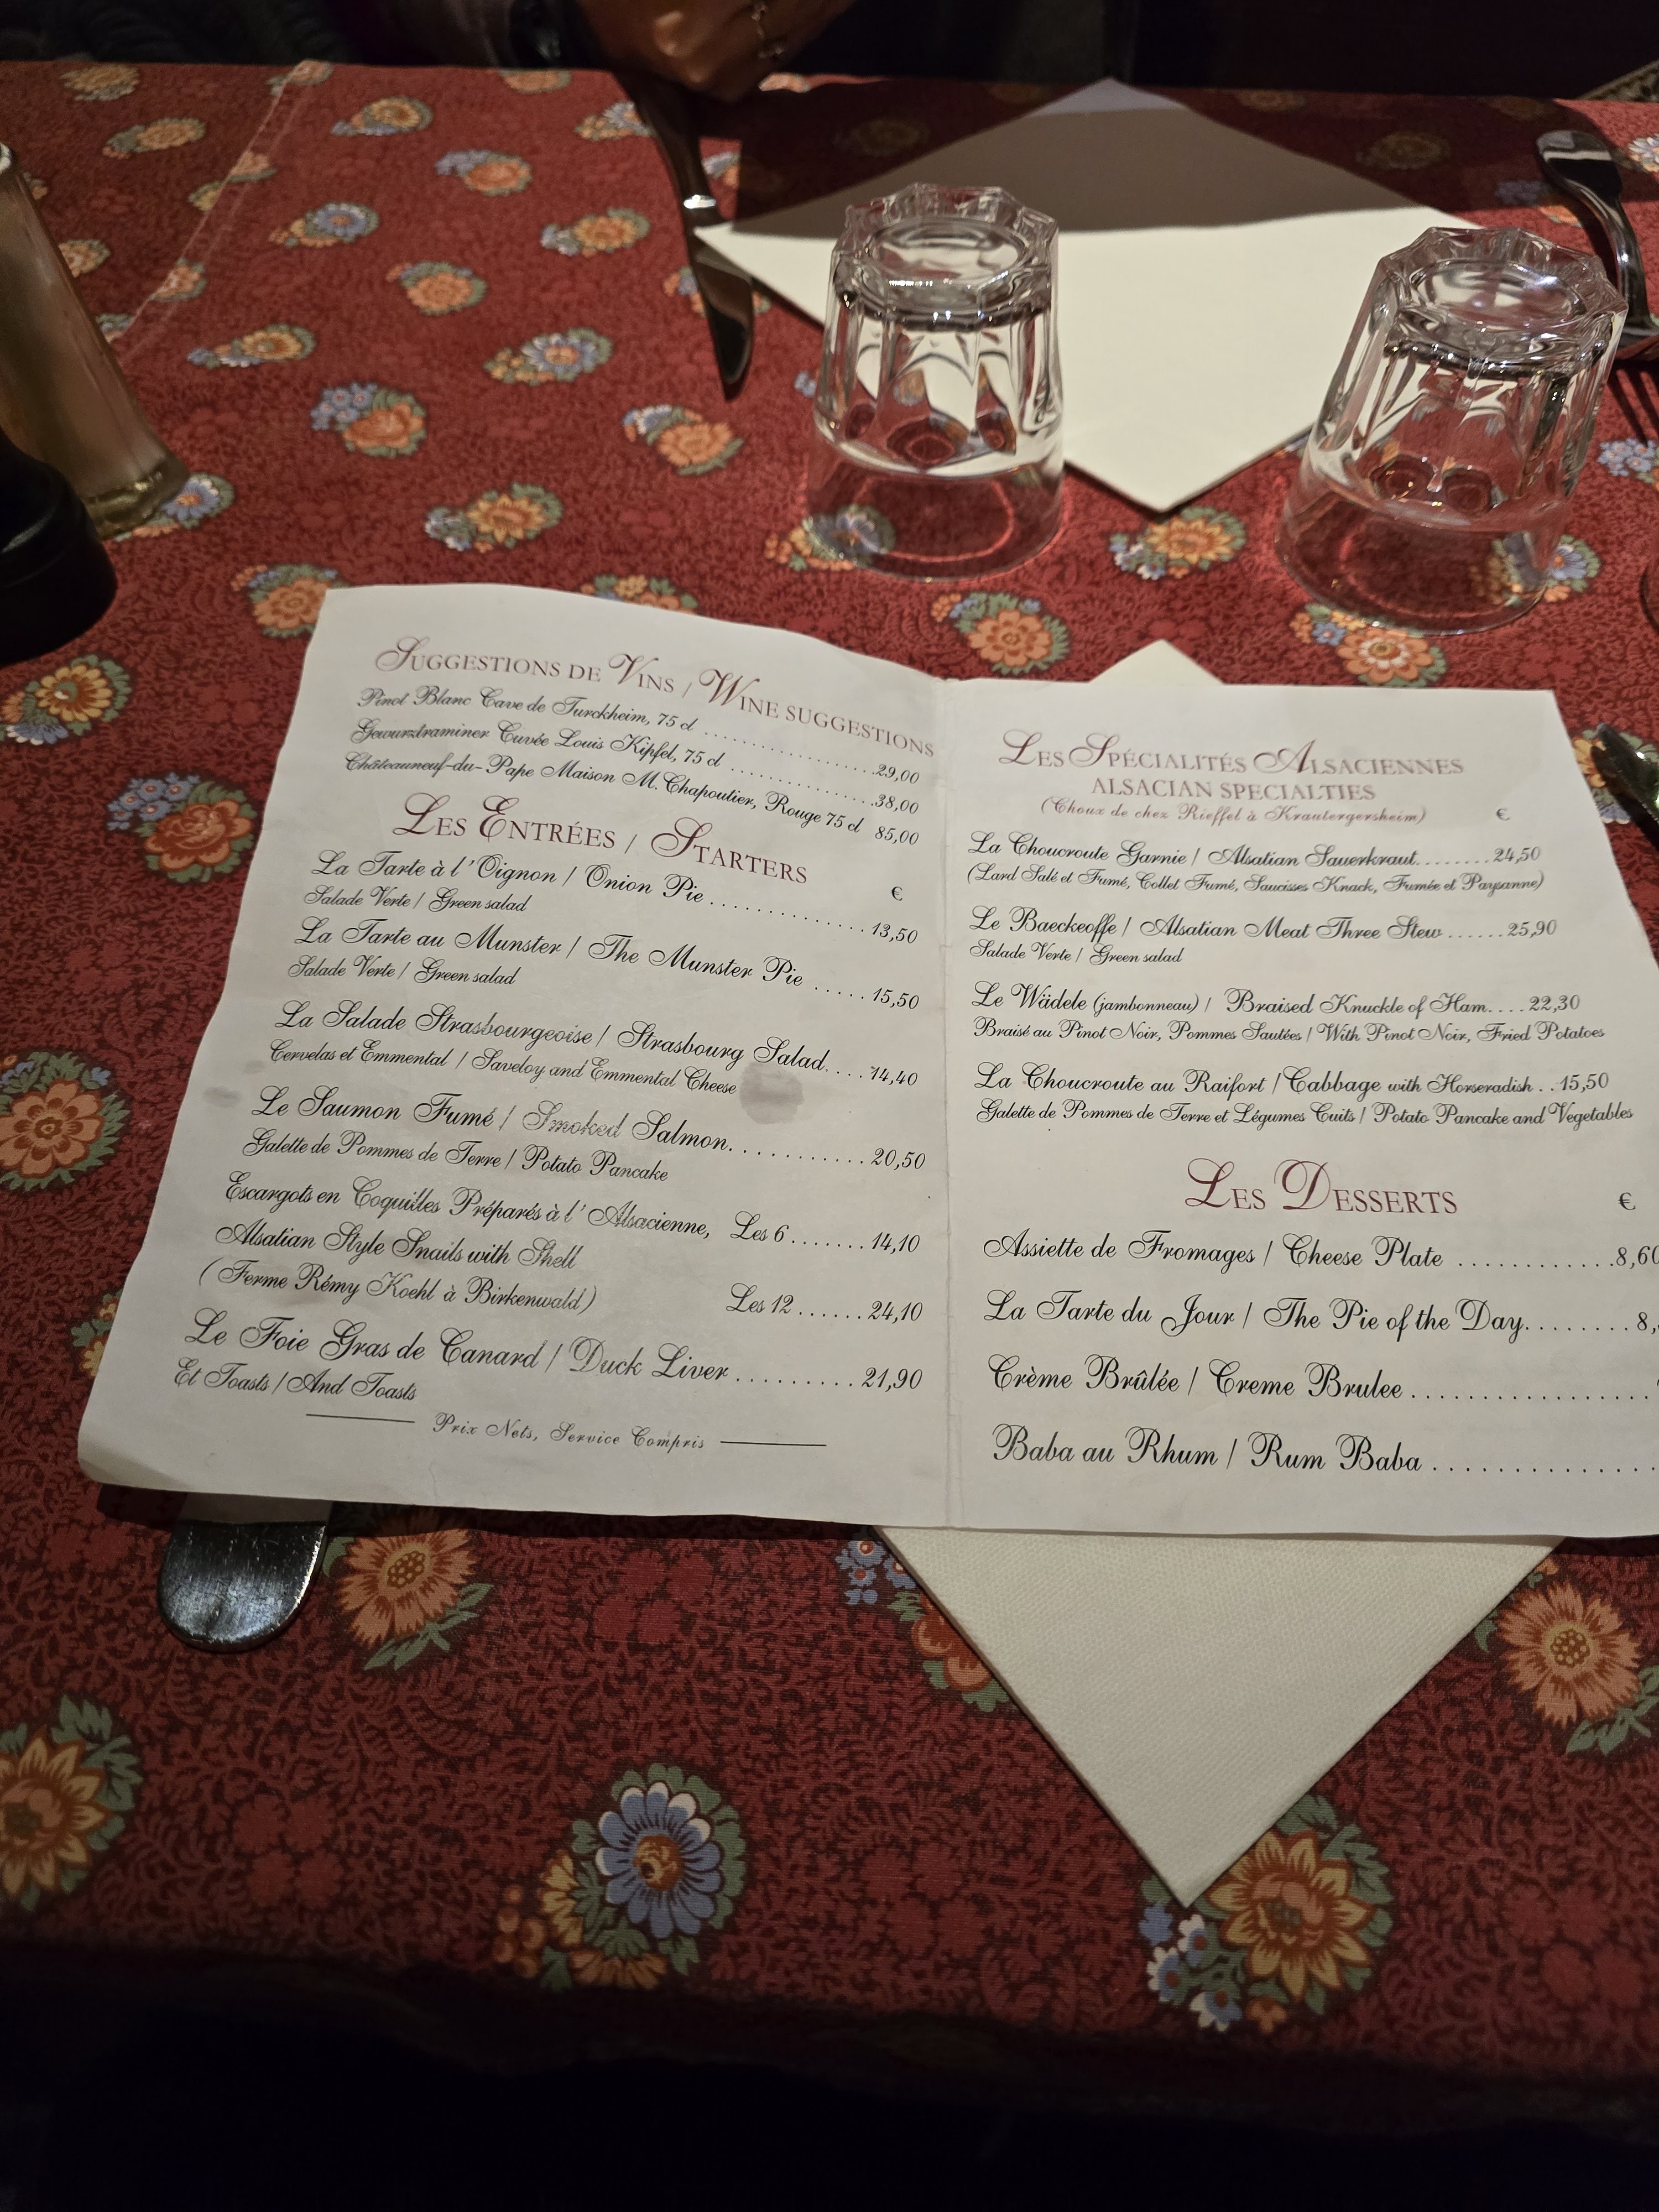 SUGGESTIONS DE VINS / WINE SUGGESTIONS
Pinot Blanc Cave de Turckheim, 75 cl ..................29,00
Gewurztraminer Cuvée Louis Kipfel, 75 cl ...............38,00
Châteauneuf-du-Pape Maison M. Chapoutier, Rouge 75 cl 85,00
LES ENTRÉES / STARTERS
€
La Tarte à l'Oignon / Onion Pie ..................13,50
Salade Verte / Green salad
La Tarte au Munster / The Munster Pie ......15,50
Salade Verte / Green salad
La Salade Strasbourgeoise / Strasbourg Salad....14,40
Cervelas et Emmental / Saveloy and Emmental Cheese
Le Saumon Fumé / Smoked Salmon............20,50
Galette de Pommes de Terre / Potato Pancake
Escargots en Coquilles Préparés à l'Alsacienne, Les 6........14,10
Alsatian Style Snails with Shell
(Ferme Rémy Koehl à Birkenwald) Les 12.......24,10
Le Foie Gras de Canard / Duck Liver ..........21,90
Et Toasts / And Toasts
Prix Nets, Service Compris
LES SPÉCIALITÉS ALSACIENNES
ALSACIAN SPECIALTIES
(Choux de chez Rieffel à Krautergersheim) €
La Choucroute Garnie / Alsatian Sauerkraut........24,50
(Lard Salé et Fumé, Collet Fumé, Saucisses Knack, Fumée et Paysanne)
Le Baeckeoffe / Alsatian Meat Three Stew ......25,90
Salade Verte / Green salad
Le Wädele (jambonneau) / Braised Knuckle of Ham....22,30
Braisé au Pinot Noir, Pommes Sautées / With Pinot Noir, Fried Potatoes
La Choucroute au Raifort / Cabbage with Horseradish ..15,50
Galette de Pommes de Terre et Légumes Cuits / Potato Pancake and Vegetables
LES DESSERTS
€
Assiette de Fromages / Cheese Plate ............8,60
La Tarte du Jour / The Pie of the Day........8,
Crème Brûlée / Creme Brulee ..................
Baba au Rhum / Rum Baba ................